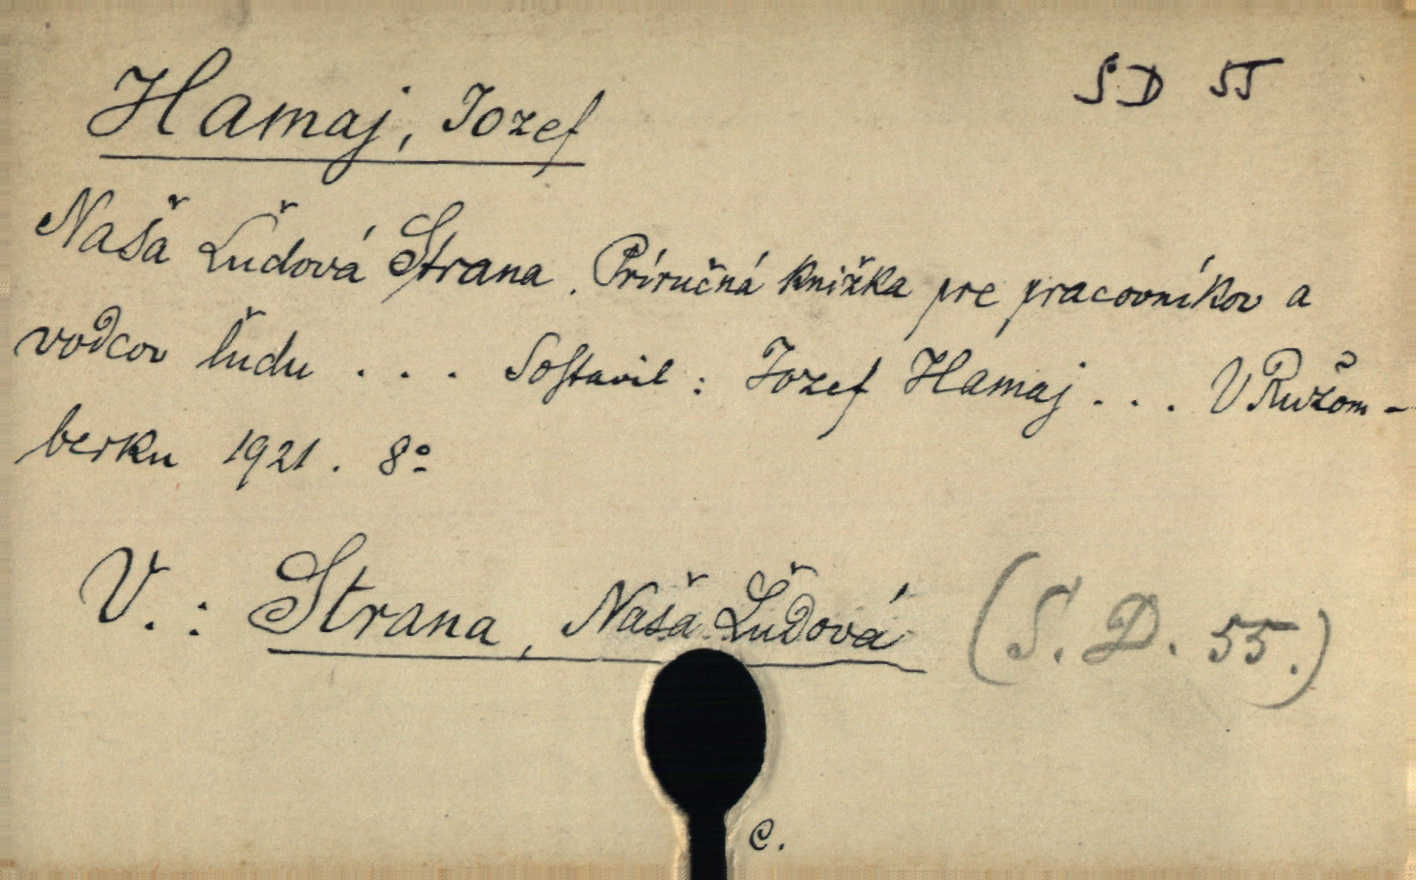 Hamaj, Jozef
SD 55
Naša Ľudová Strana. Príručná knižka pre pracovníkov a
vodcov ľudu . . . Sostavil: Jozef Hamaj . . . V Ružom-
berku 1921. 8º
V.: Strana, Naša Ľudová (S. D. 55.)
C.